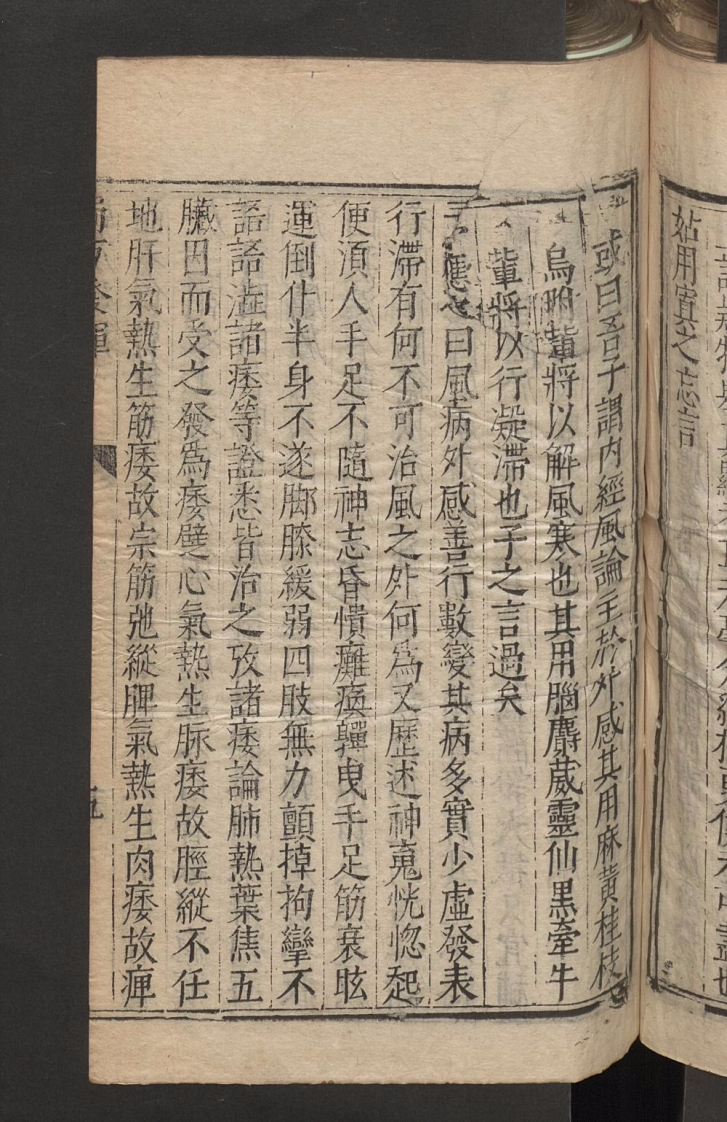 姑用寘之忘言
或曰吾子謂内經風論主於外感其用麻黄桂枝
烏附輩將以解風寒也其用腦麝葳靈仙黒牽牛
輩將以行凝滯也子之言過矣
予應之曰風病外感善行數變其病多實少虛發表
行滯有何不可治風之外何爲又歷述神䰟恍惚起
便湏人手足不隨神志昏憒癱瘓嚲曳手足筋衰眩
運倒仆半身不遂脚膝緩弱四肢無力顫掉拘攣不
語語澁諸痿等證悉皆治之攷諸痿論肺熱葉焦五
臟因而受之發爲痿躄心氣熱生脉痿故脛縱不任
地肝氣熱生筋痿故宗筋弛縱脾氣熱生肉痿故痺
局方發揮
五